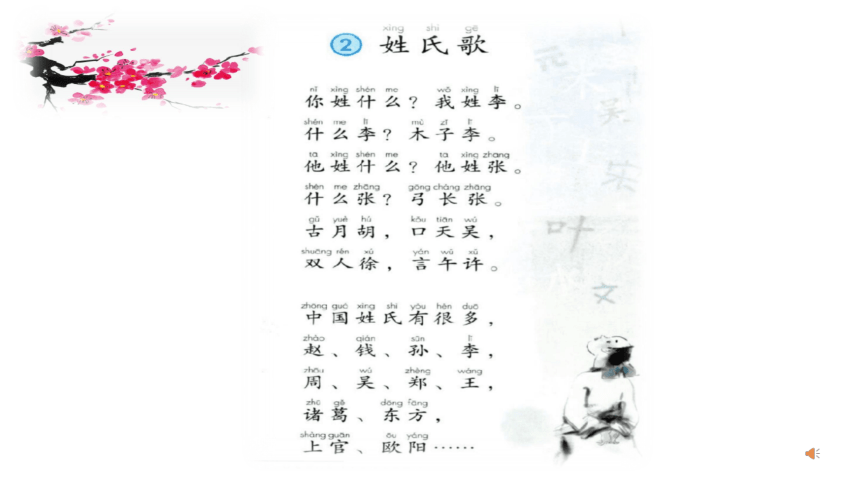 xìng shì gē
2 姓氏歌
nǐ xìng shén me wǒ xìng lǐ
你姓什么？我姓李。
shén me lǐ mù zǐ lǐ
什么李？木子李。
tā xìng shén me tā xìng zhāng
他姓什么？他姓张。
shén me zhāng gōng cháng zhāng
什么张？弓长张。
gǔ yuè hú kǒu tiān wú
古月胡，口天吴，
shuāng rén xú yán wǔ xǔ
双人徐，言午许。
zhōng guó xìng shì yǒu hěn duō
中国姓氏有很多，
zhào qián sūn lǐ
赵、钱、孙、李，
zhōu wú zhèng wáng
周、吴、郑、王，
zhū gě dōng fāng
诸葛、东方，
shàng guān ōu yáng
上官、欧阳……
吴
叶
文